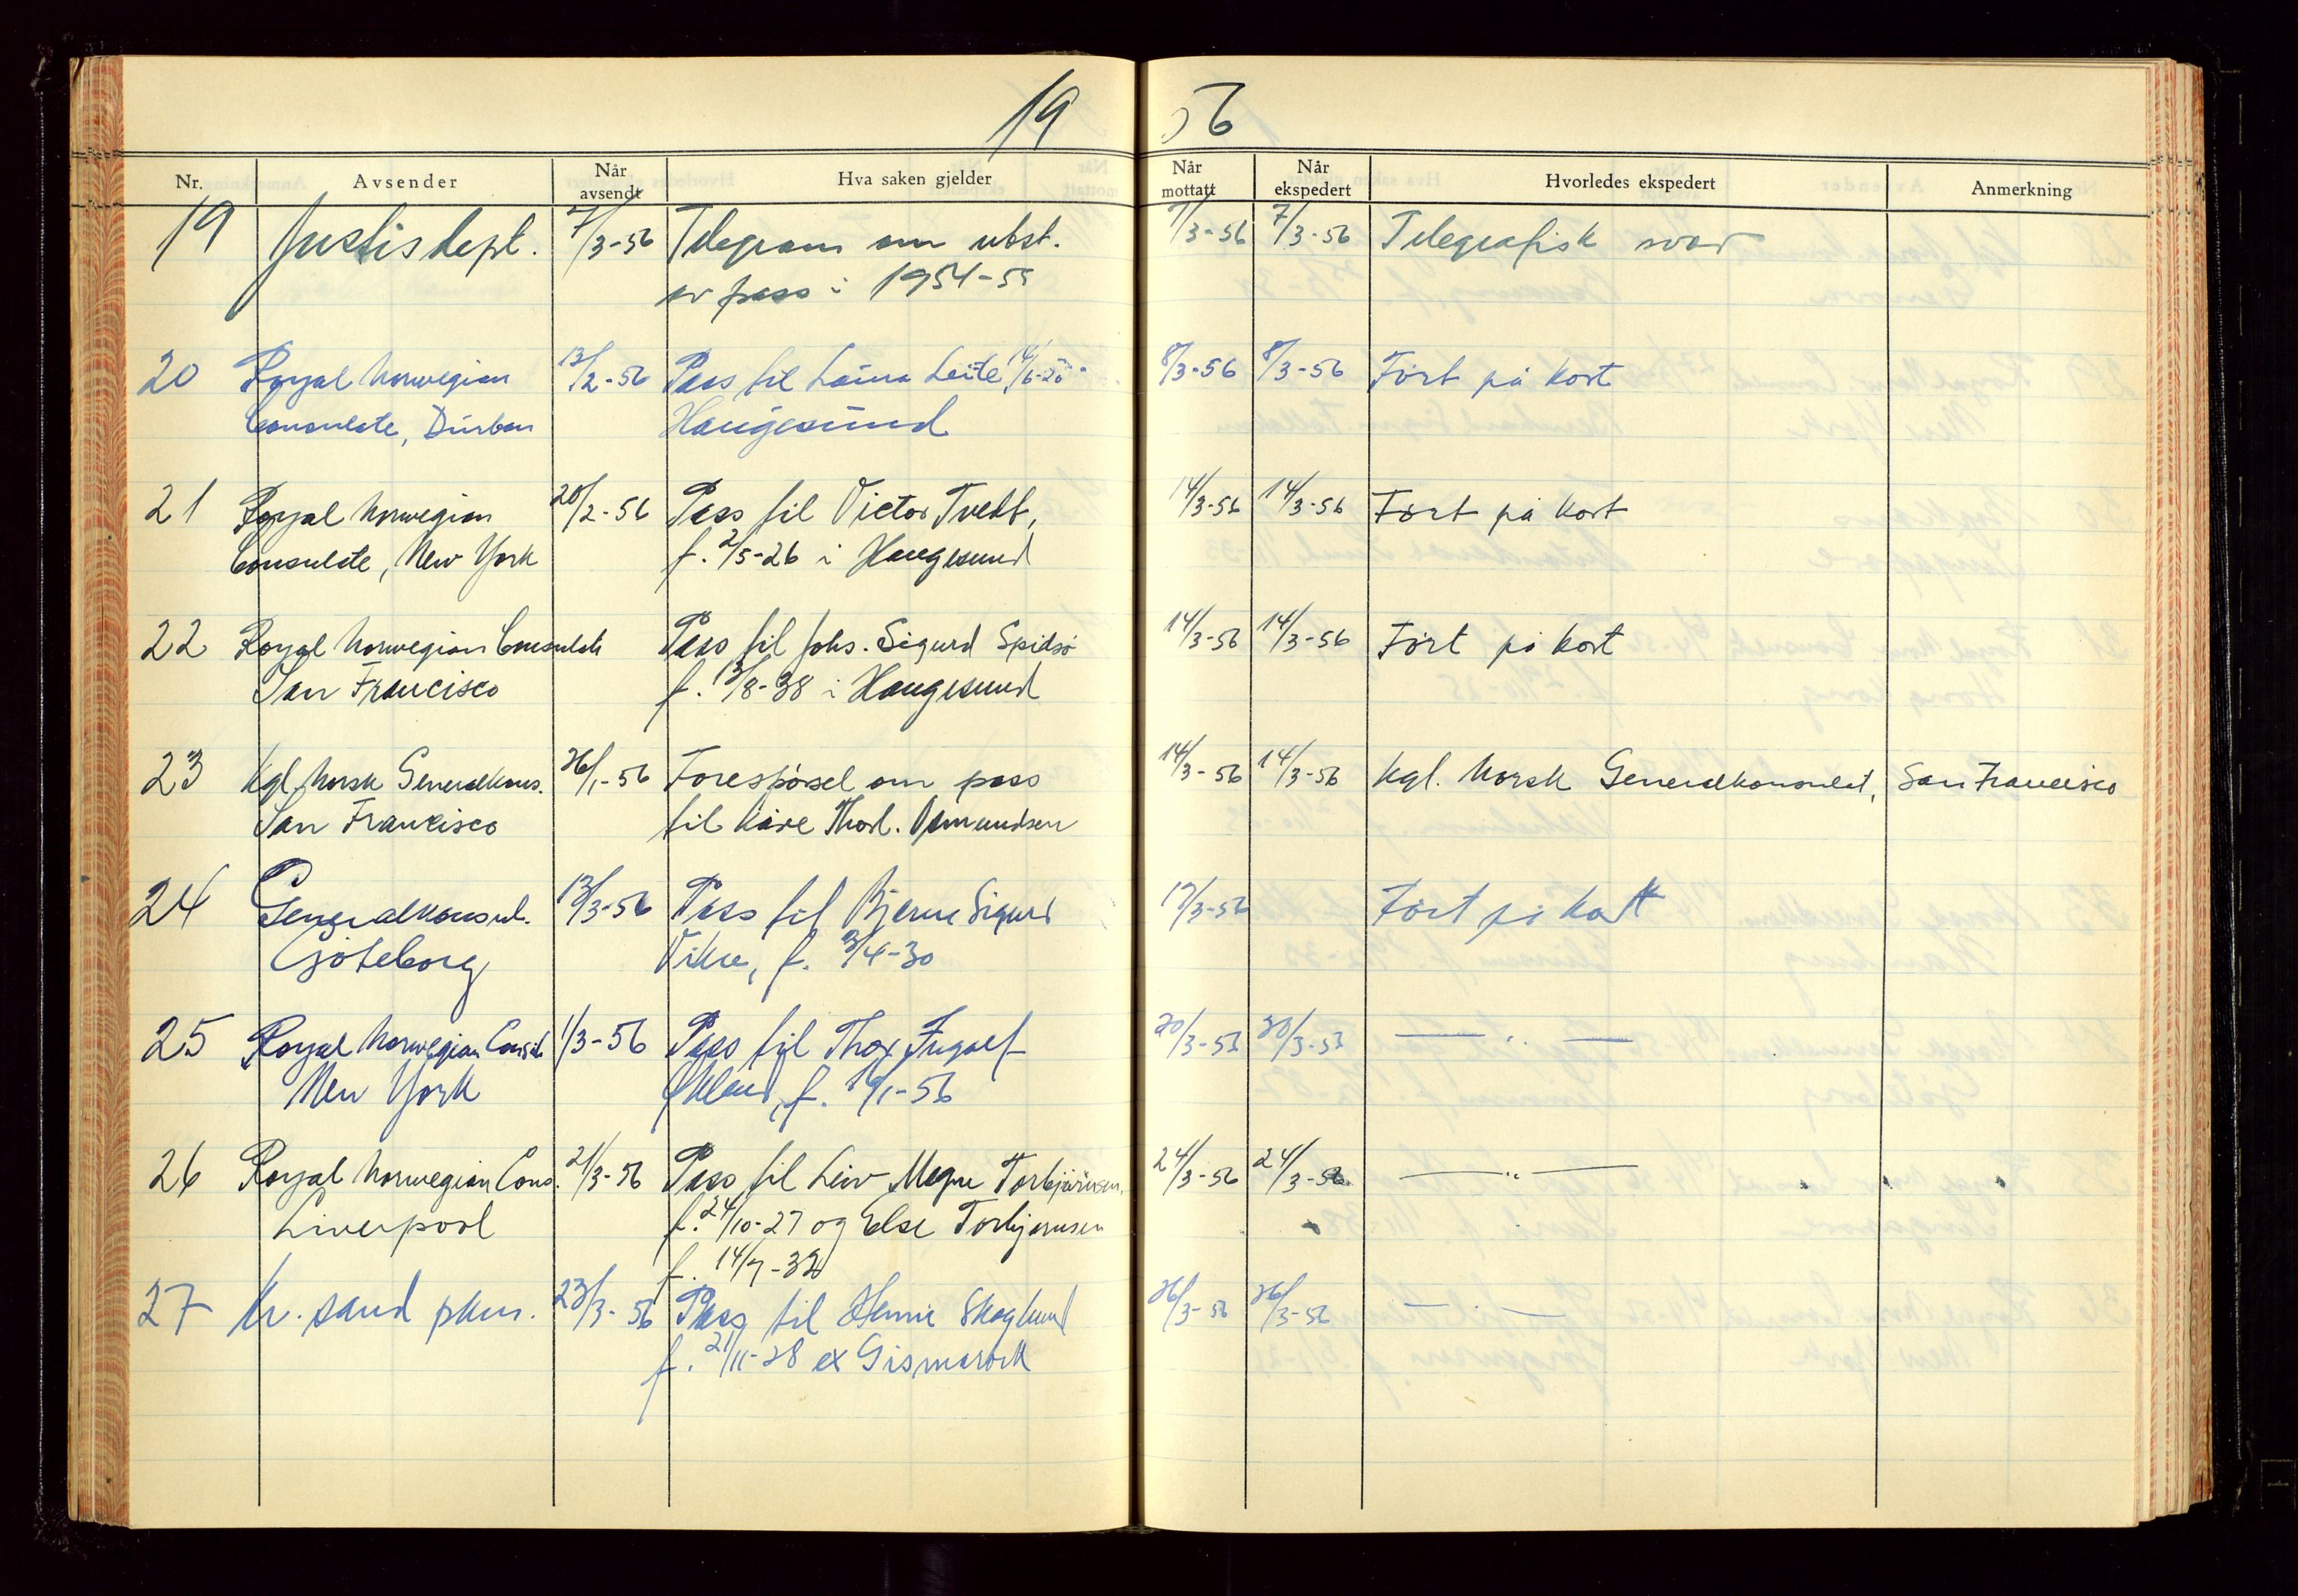 19 56
Nr. Avsender Når avsendt Hva saken gjelder Når mottatt Når ekspedert Hvorledes ekspedert Anmerkning
19 Justisdept. 7/3-56 Telegram om utst. 7/3-56 7/3-56 Telegrafisk svar
av pass i 1954-55
20 Royal Norwegian 13/2-56 Pass til Laura Leite, 8/3-56 8/3-56 Ført på kort
Consulate, Durban Haugesund
21 Royal Norwegian 20/2-56 Pass til Victor Tvedt, 14/3-56 14/3-56 Ført på kort
Consulate, New York f. 2/5-26 i Haugesund
22 Royal Norwegian Consulate Pass til Johs. Sigurd Spidsø 14/3-56 14/3-56 Ført på kort
San Francisco f. 13/8-38 i Haugesund
23 Kgl. Norsk Generalkons. 26/1-56 Forespørsel om pass 14/3-56 14/3-56 Kgl. Norsk Generalkonsulat, San Francisco
San Francisco til Kåre Thorl. Osmundsen
24 Generalkonsul. 13/3-56 Pass til Bjarne Sigurd 17/3-56 Ført på kort
Göteborg Vikse, f. 3/4-30
25 Royal Norwegian Consul. 1/3-56 Pass til Thor Ingolf 20/3-53 20/3-53 — " —
New York Økland, f. /1-56
26 Royal Norwegian Cons. 21/3-56 Pass til Leiv Magne Torbjørnsen, 24/3-56 24/3-56 — " —
Liverpool f. 24/10-27 og Else Torbjørnsen
f. 14/7-32
27 Kr.sand pkm. 23/3-56 Pass til Hennie Skoglund 26/3-56 26/3-56 — " —
f. 21/11-28 ex Gismarvik